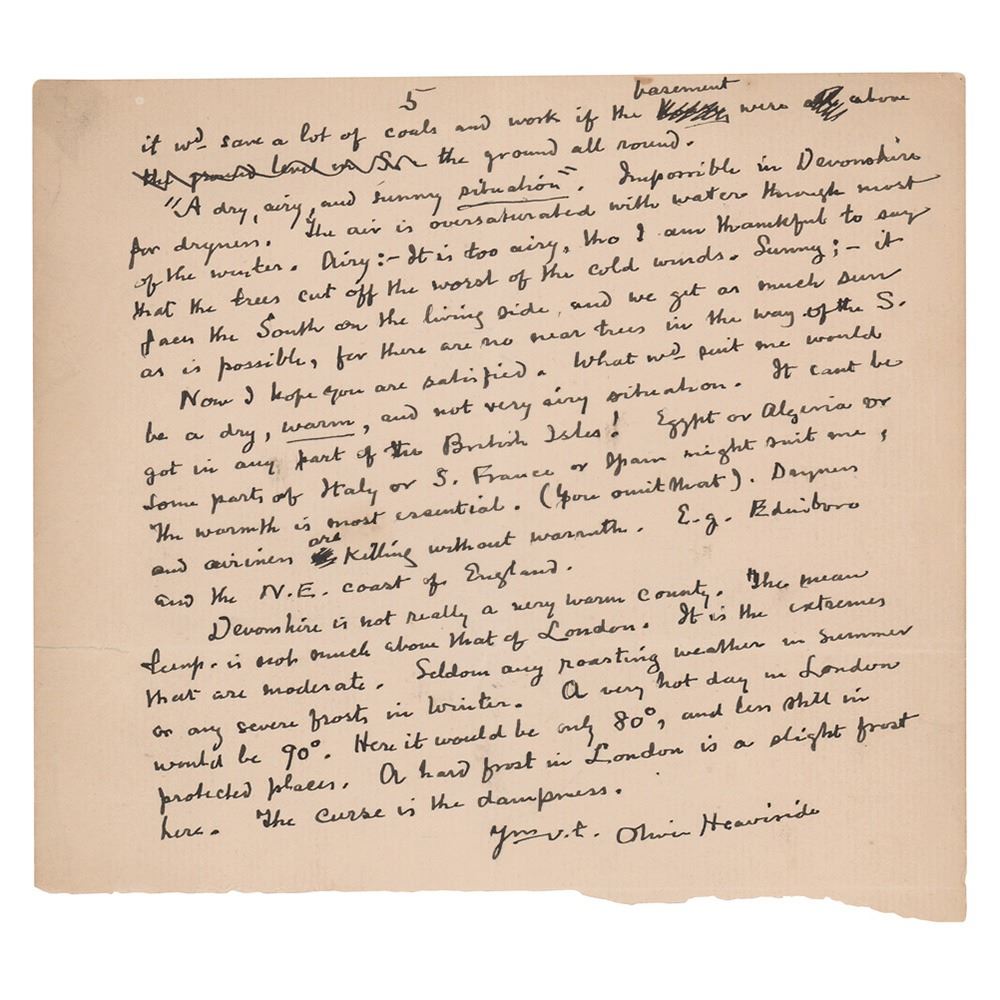 5
basement
it wd save a lot of coals and work if the were above
the ground level in S. the ground all round.
"A dry, airy, and sunny situation". Impossible in Devonshire
for dryness. The air is oversaturated with water through most
of the winter. Airy:- It is too airy, tho I am thankful to say
that the trees cut off the worst of the cold winds. Sunny;- it
faces the South on the living side, and we get as much sun
as is possible, for there are no near trees in the way of the S.
Now I hope you are satisfied. What wd suit me would
be a dry, warm, and not very airy situation. It cant be
got in any part of the British Isles! Egypt or Algeria or
some parts of Italy or S. France or Spain might suit me,
The warmth is most essential. (You omit that). Dryness
and airiness are killing without warmth. E.g. Edinboro
and the N.E. coast of England.
Devonshire is not really a very warm county. The mean
temp. is not much above that of London. It is the extremes
that are moderate. Seldom any roasting weather in Summer
or any severe frosts in Winter. A very hot day in London
would be 90°. Here it would be only 80°, and less still in
protected places. A hard frost in London is a slight frost
here. The curse is the dampness.
Yrs v.t. Oliver Heaviside